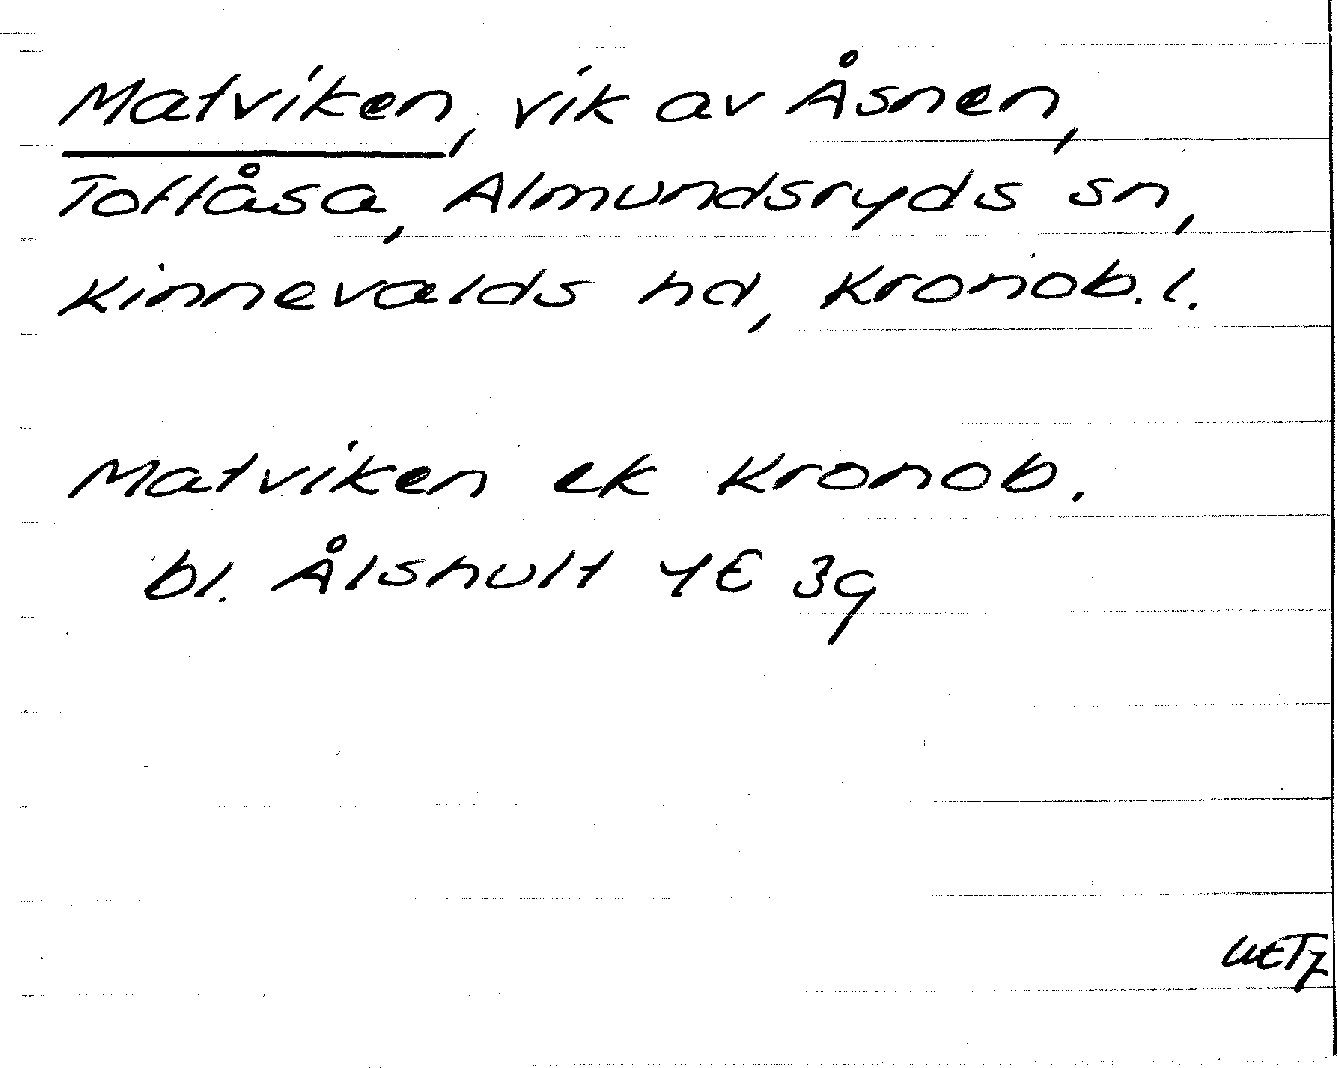 Matviken, vik av Åsnen,
Toftåsa, Almundsryds sn,
Kinnevalds hd, Kronob. l.
Matviken ek Kronob.
bl. Ålshult 4E 3g